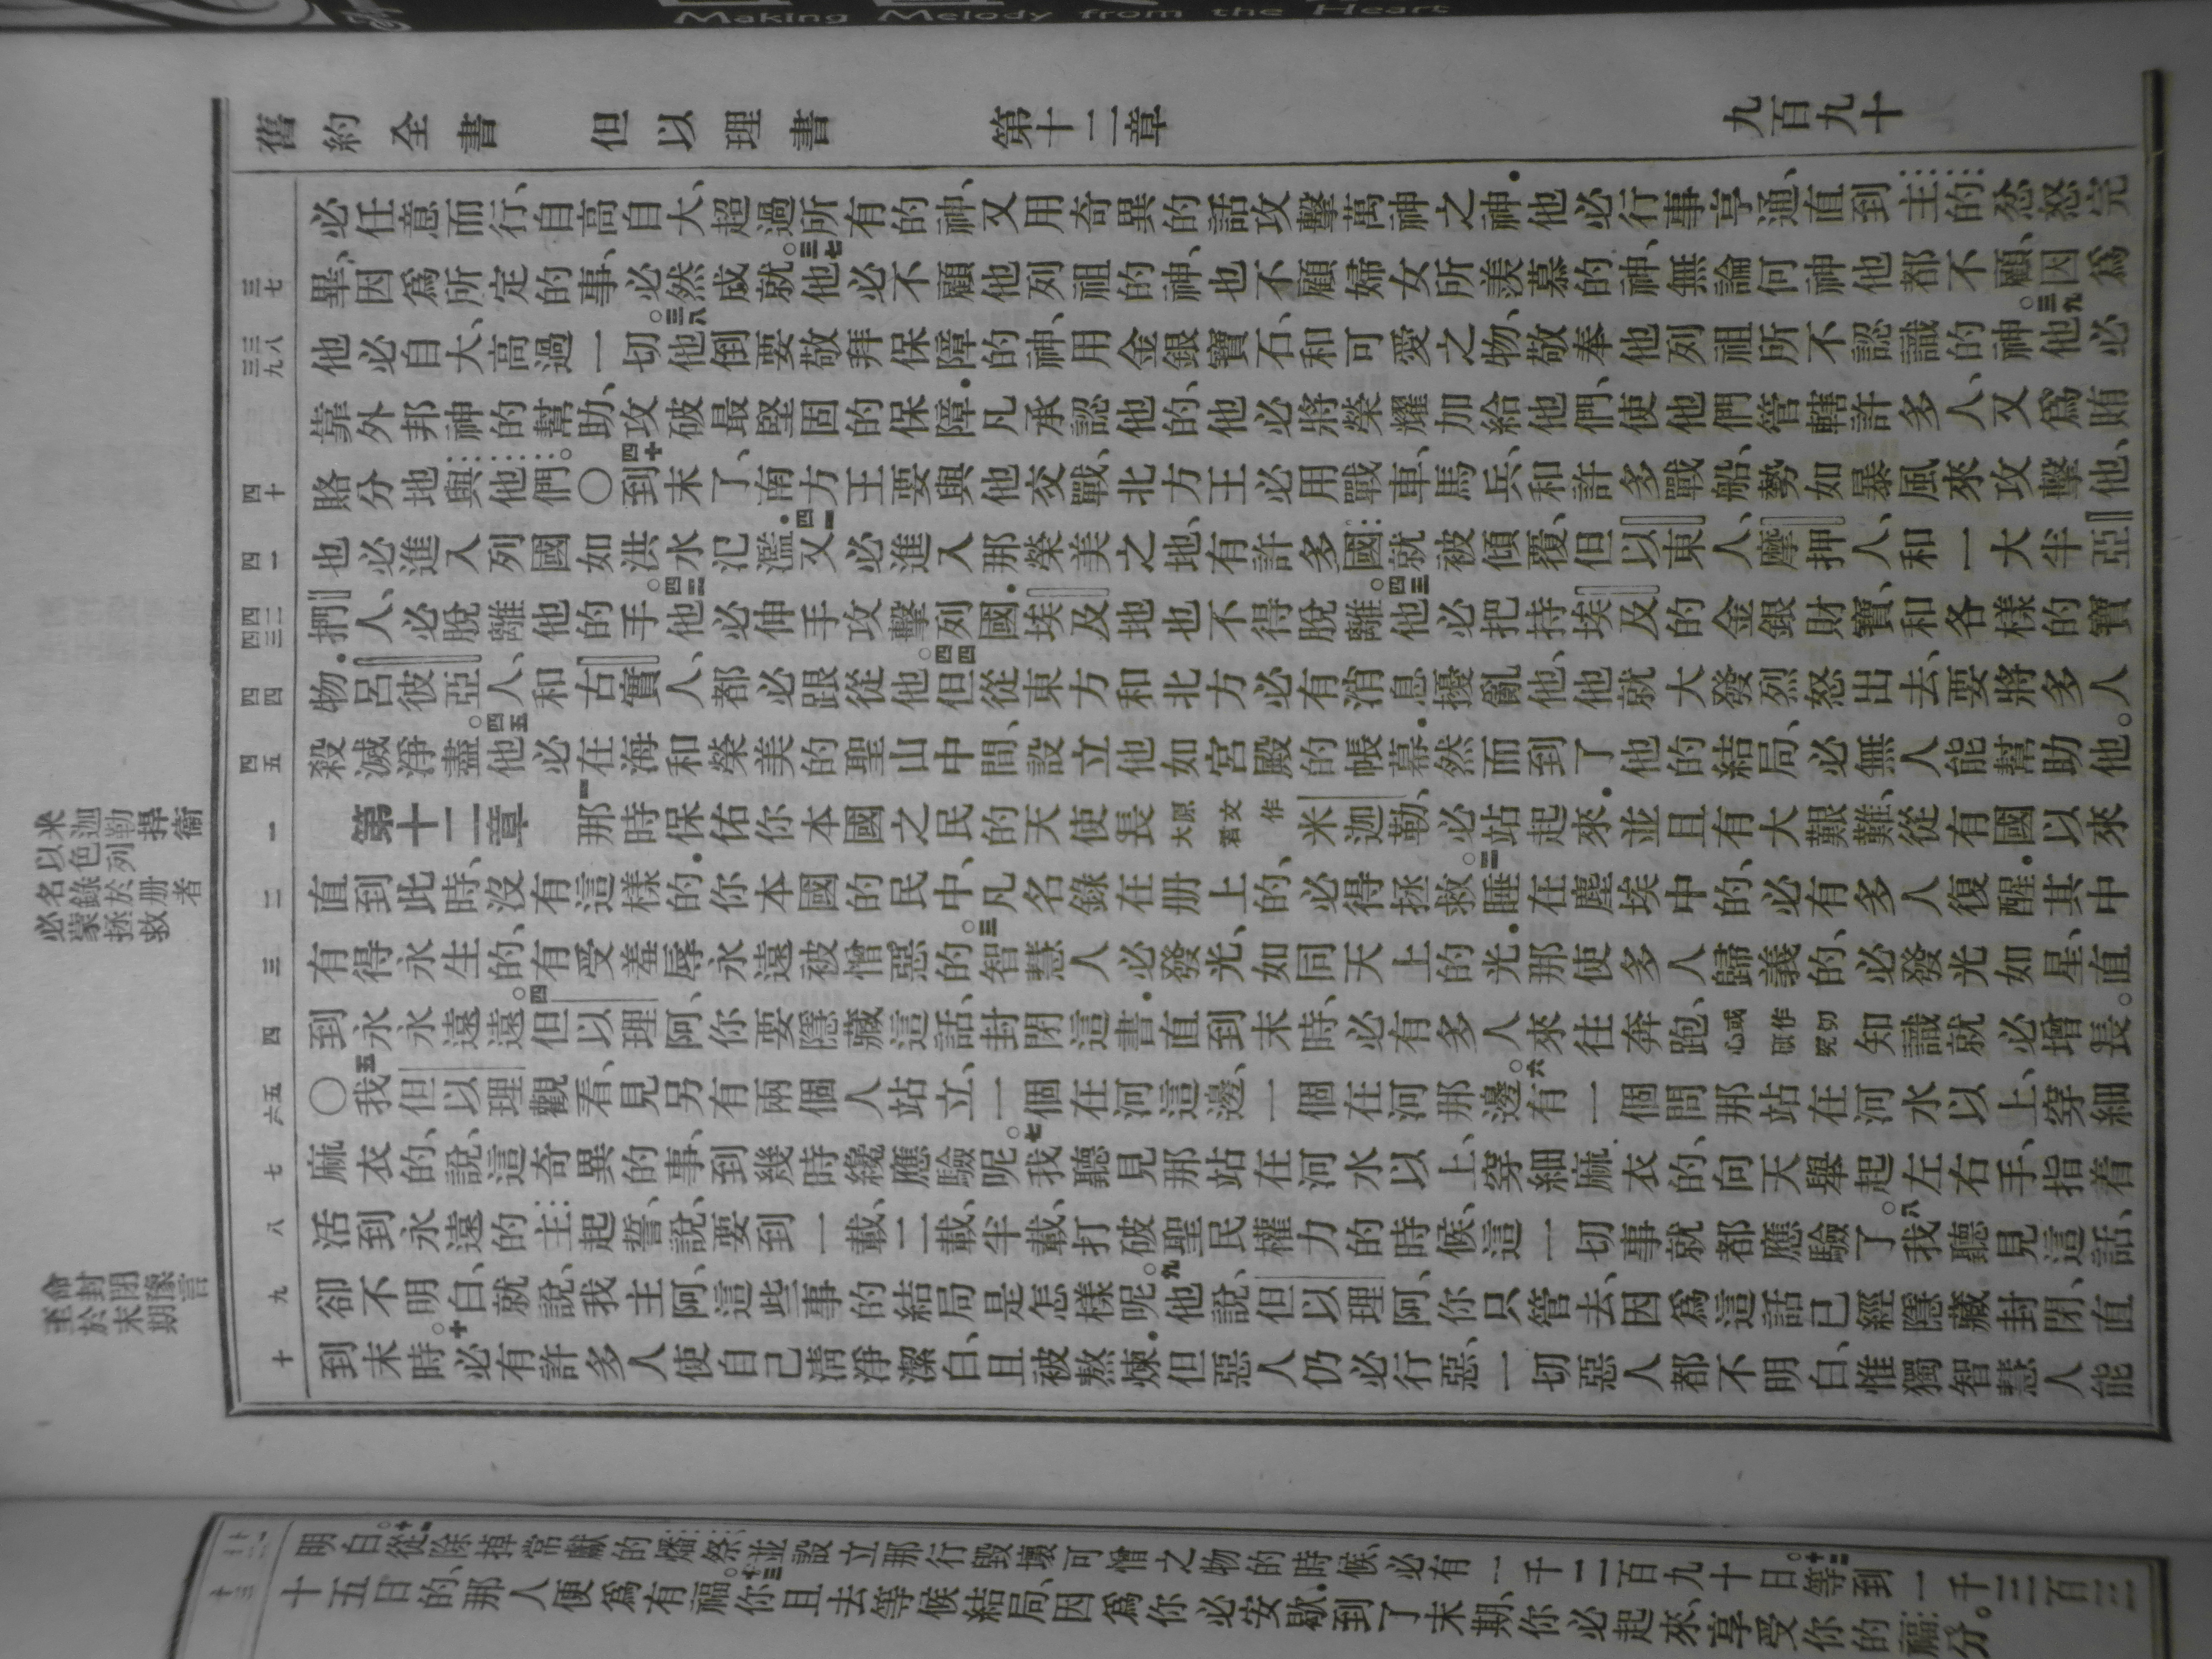 Making Melody from the Heart
舊約全書 但以理書 第十二章 九百九十
必任意而行、自高自大、超過所有的神、又用奇異的話攻擊萬神之神．他必行事亨通、直到主的忿怒完
三七 畢、因爲所定的事、必然成就。三七他必不顧他列祖的神、也不顧婦女所羨慕的神、無論何神他都不顧、因爲
三八 三九 他必自大、高過一切。三八他倒要敬拜保障的神、用金銀寶石、和可愛之物、敬奉他列祖所不認識的神。三九他必
靠外邦神的幫助、攻破最堅固的保障．凡承認他的、他必將榮耀加給他們、使他們管轄許多人、又爲賄
四十 賂分地與他們。〇四十到末了、南方王要與他交戰、北方王必用戰車、馬兵、和許多戰船、勢如暴風來攻擊他、
四一 也必進入列國如洪水氾濫．四一又必進入那榮美之地、有許多國就被傾覆、但以東人、摩押人、和一大半亞
四二 四三 捫人、必脫離他的手。四二他必伸手攻擊列國．埃及地也不得脫離。四三他必把持埃及的金銀財寶、和各樣的寶
四四 物．呂彼亞人、和古實人、都必跟從他。四四但從東方和北方必有消息擾亂他、他就大發烈怒出去、要將多人
四五 殺滅淨盡。四五他必在海和榮美的聖山中間、設立他如宮殿的帳幕．然而到了他的結局、必無人能幫助他。
一 第十二章 一那時保佑你本國之民的天使長原文作大君米迦勒、必站起來．並且有大艱難、從有國以來
二 直到此時、沒有這樣的．你本國的民中、凡名錄在册上的、必得拯救。二睡在塵埃中的、必有多人復醒．其中
三 有得永生的、有受羞辱、永遠被憎惡的。三智慧人必發光、如同天上的光．那使多人歸義的、必發光如星、直
四 到永永遠遠。四但以理阿、你要隱藏這話、封閉這書．直到末時、必有多人來往奔跑、或作切心研究知識就必增長。
五 六 〇五我但以理觀看、見另有兩個人站立、一個在河這邊、一個在河那邊。六有一個問那站在河水以上、穿細
七 麻衣的、說、這奇異的事、到幾時纔應驗呢。七我聽見那站在河水以上、穿細麻衣的、向天舉起左右手、指着
八 活到永遠的主起誓、說、要到一載、二載、半載、打破聖民權力的時候、這一切事就都應驗了。八我聽見這話、
九 卻不明白、就說、我主阿、這些事的結局是怎樣呢。九他說、但以理阿、你只管去、因爲這話已經隱藏封閉、直
十 到末時。十必有許多人使自己淸淨潔白、且被熬煉．但惡人仍必行惡、一切惡人都不明白、惟獨智慧人能
米迦勒捍衞
以色列
名錄於册者
必蒙拯救
命封閉豫言
至於末期
明白。十一從除掉常獻的燔祭、並設立那行毀壞可憎之物的時候、必有一千二百九十日。十二等到一千三百三
十三 十五日的、那人便爲有福。十三你且去等候結局、因爲你必安歇．到了末期、你必起來、享受你的福分。